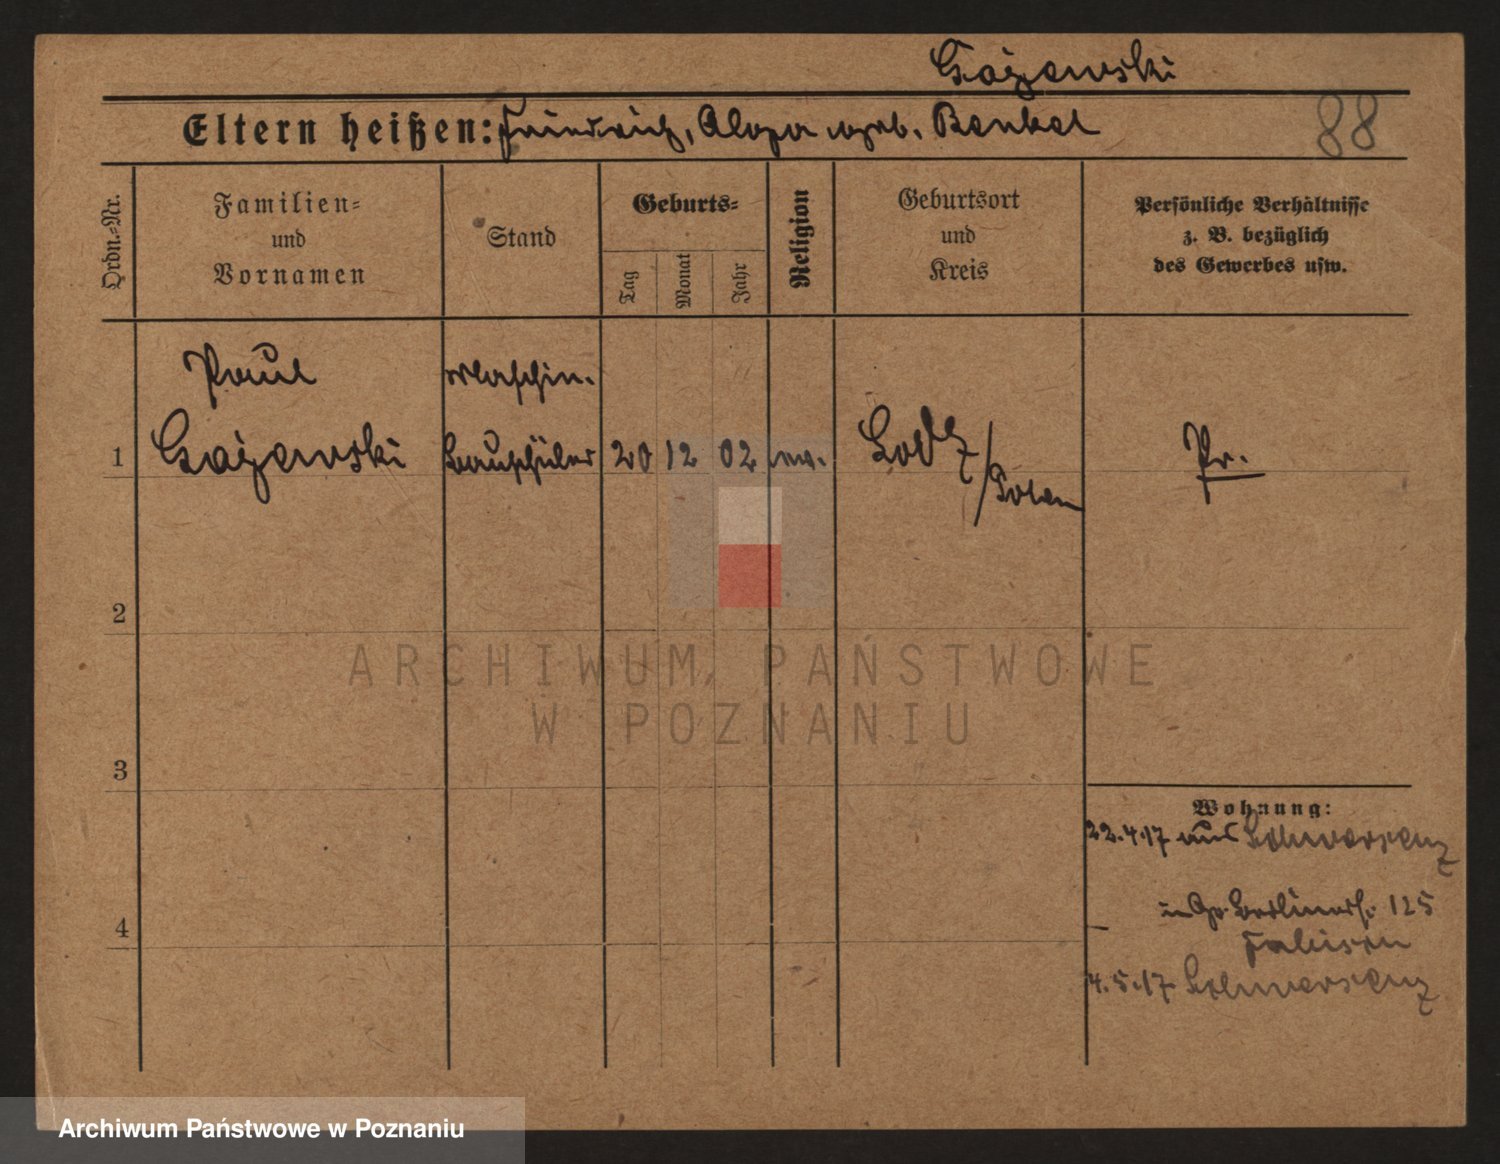 Gajewski
Eltern heißen: Friedrich, Olga geb. Benkel
88
Ordn.-Nr.
Familien-
und
Vornamen
Stand
Geburts-
Tag
Monat
Jahr
Religion
Geburtsort
und
Kreis
Persönliche Verhältnisse
z. B. bezüglich
des Gewerbes usw.
Paul
Maschin.
1
Gajewski
bauschüler
20
12
02
ev.
Lodz/
Polen
Pr.
2
3
4
Wohnung:
22.4.17 aus Schwersenz
in Gr. Berlinerst. 125
4.5.17 Schwersenz
ARCHIWUM PAŃSTWOWE
W POZNANIU
Archiwum Państwowe w Poznaniu